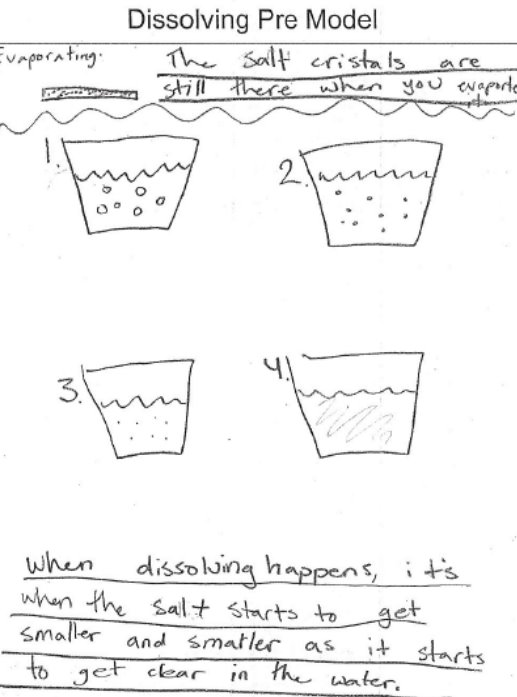 Dissolving Pre Model
Evaporating. The salt cristals are
still there when you evaporte
1.
2.
3.
4.
When dissolving happens, it's
when the salt starts to get
smaller and smaller as it starts
to get clear in the water.